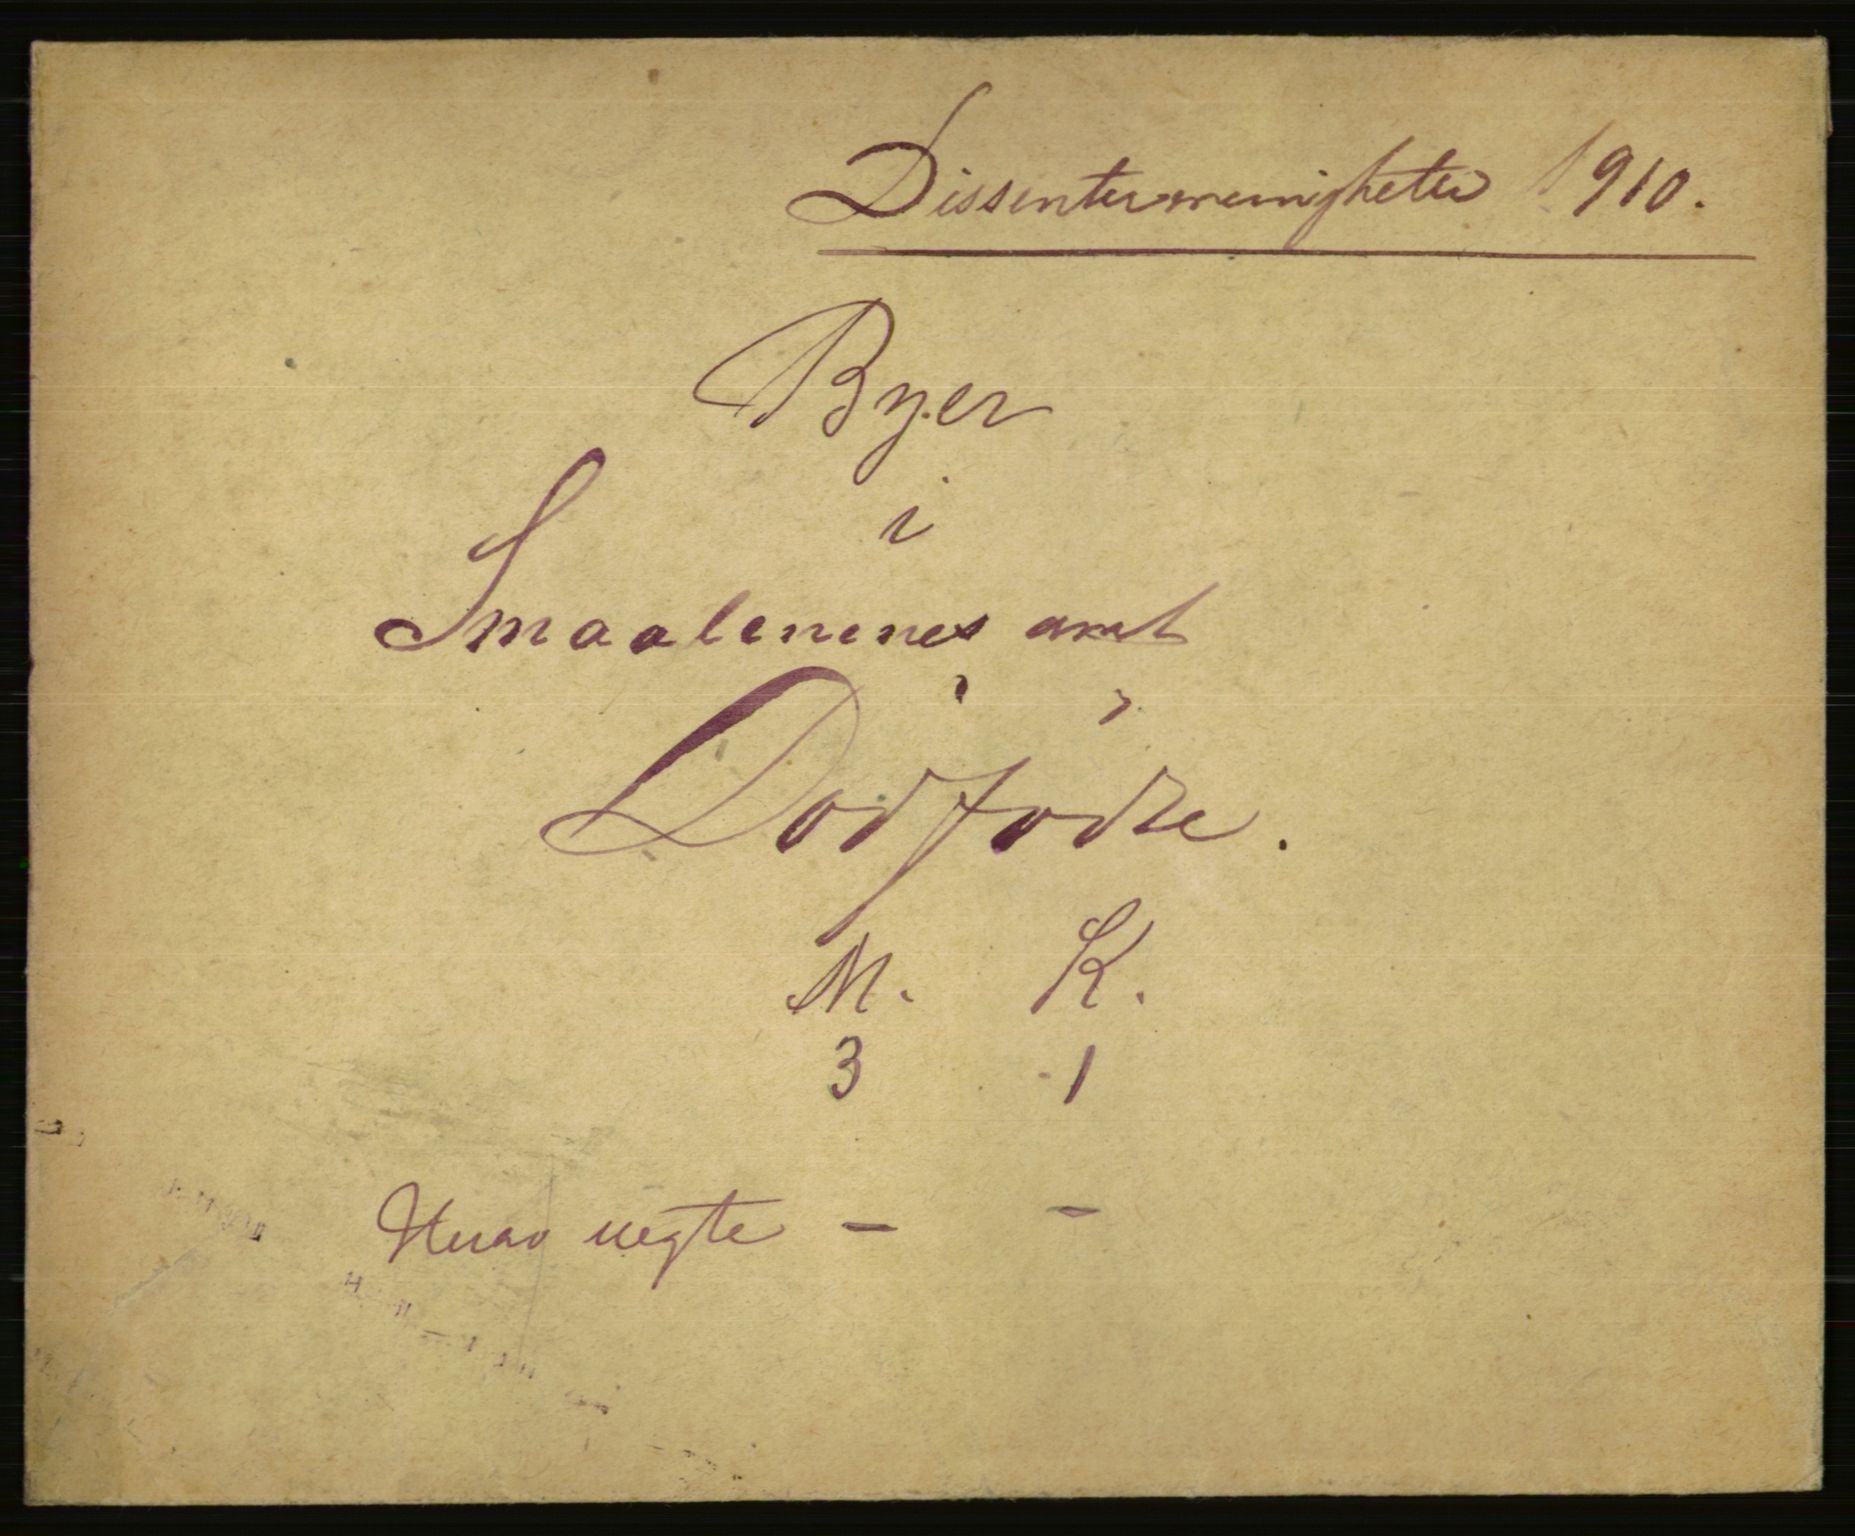 Dissentermenigheter 1910.
Byer
i
Smaalenenes amt
Dødfødte.
M. K.
3 1
Herav uegte - -